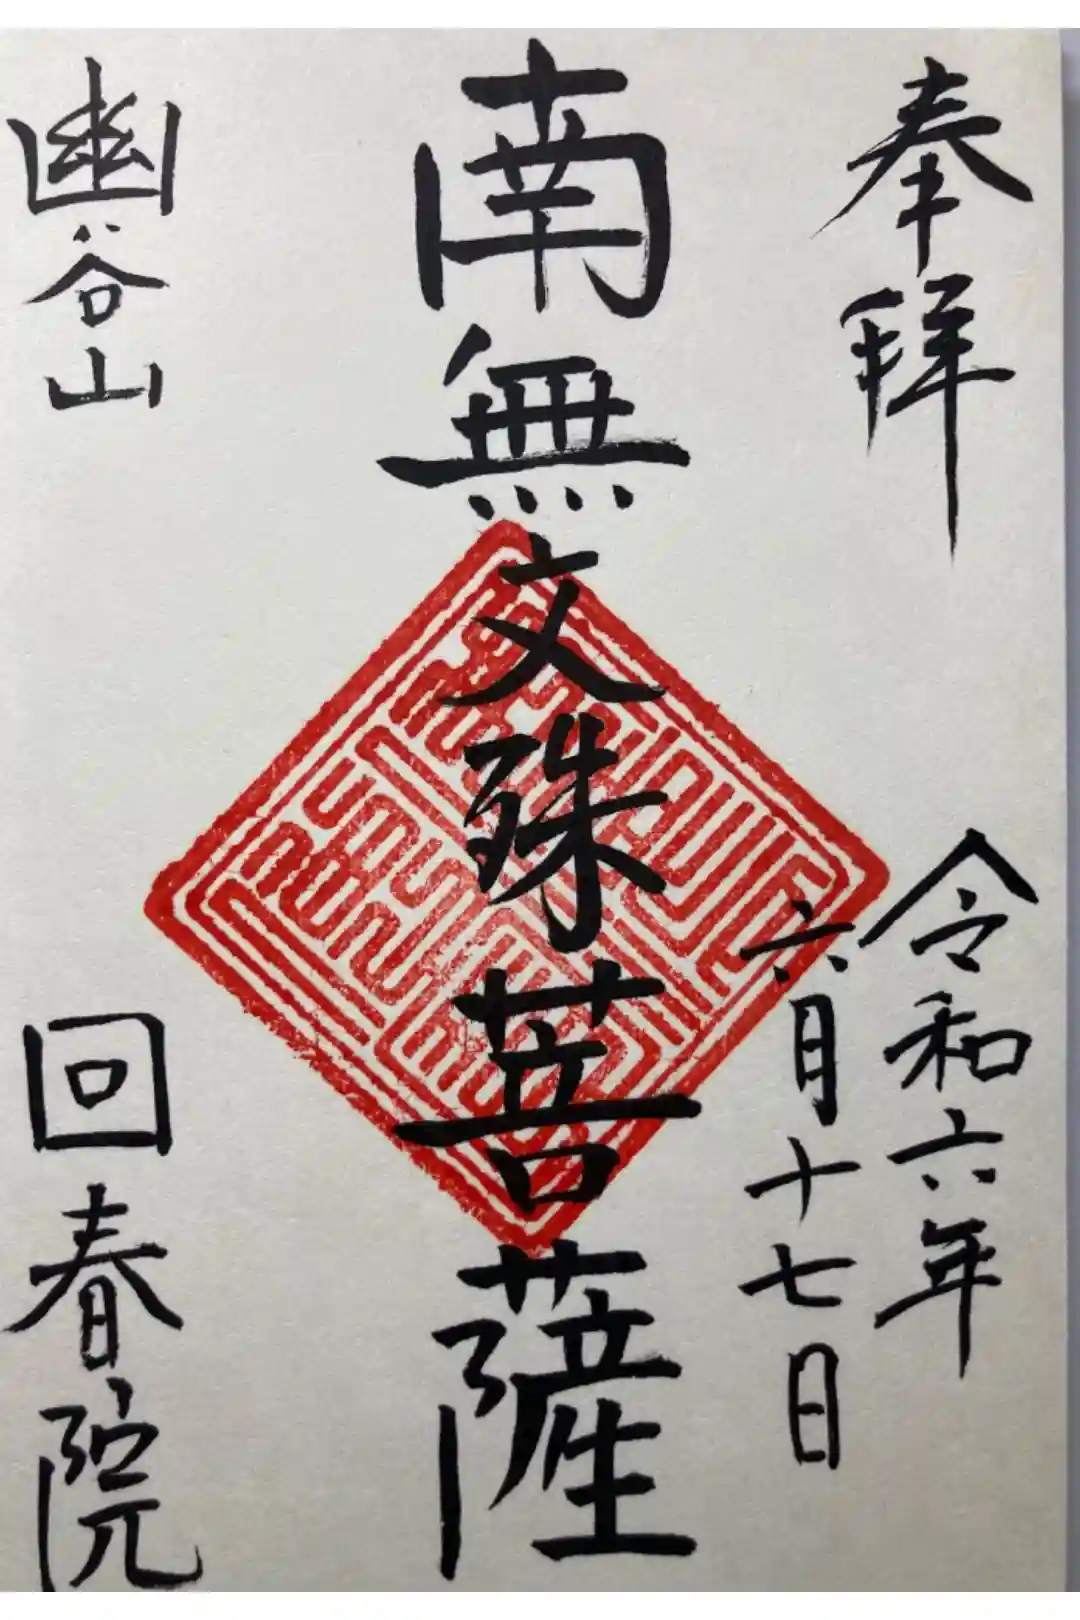 奉拜
令和六年
六月十七日
南無文殊菩薩
幽谷山
回春院